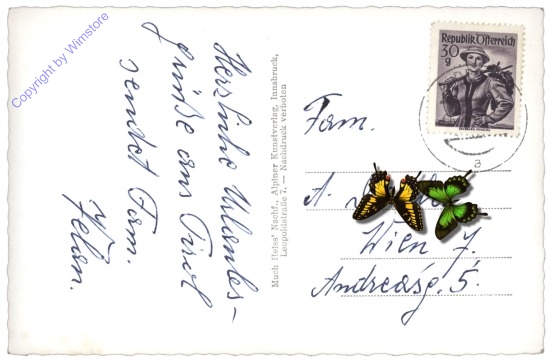 Copyright by Wimstore
Herzliche Urlaubs-
grüße aus Tirol
sendet Fam.
Much Heiss' Nachf., Alpiner Kunstverlag, Innsbruck,
Leopoldstraße 7. — Nachdruck verboten
Republik Österreich
30
g
a
Fam.
A.
Wien 7.
Andreasg. 5.